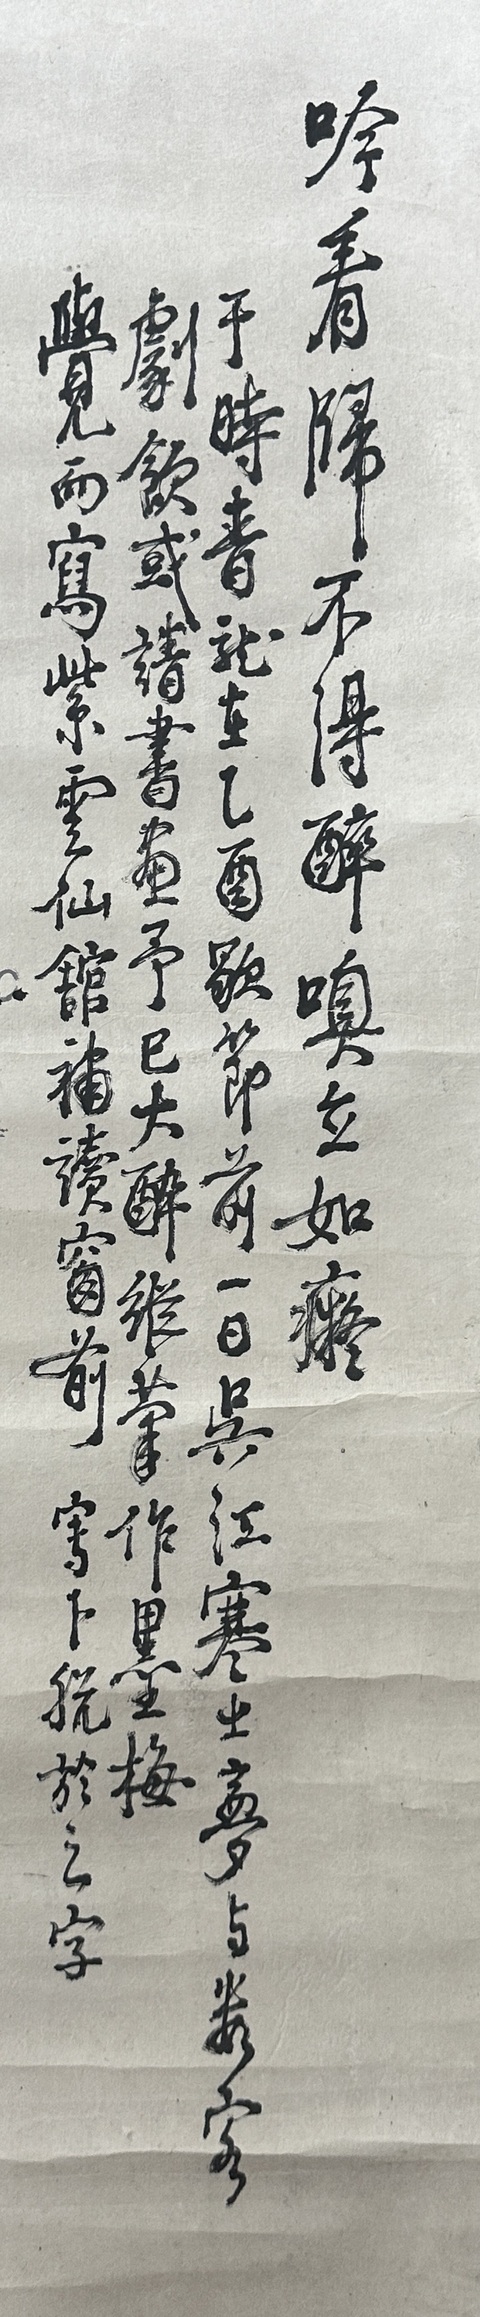 吟看歸不得醉嗅立如癡
于時青龍在乙酉歇節前一日吳江寒士夢与數客
劇飲或請書畫予已大醉縱筆作墨梅
覺而寫紫雲仙館補讀窗前 寫下脫於之字